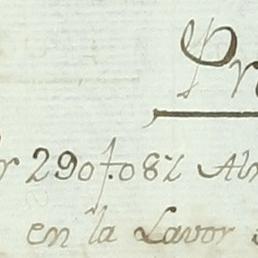 Pr
r 290f.082 Alm
en la Lavor